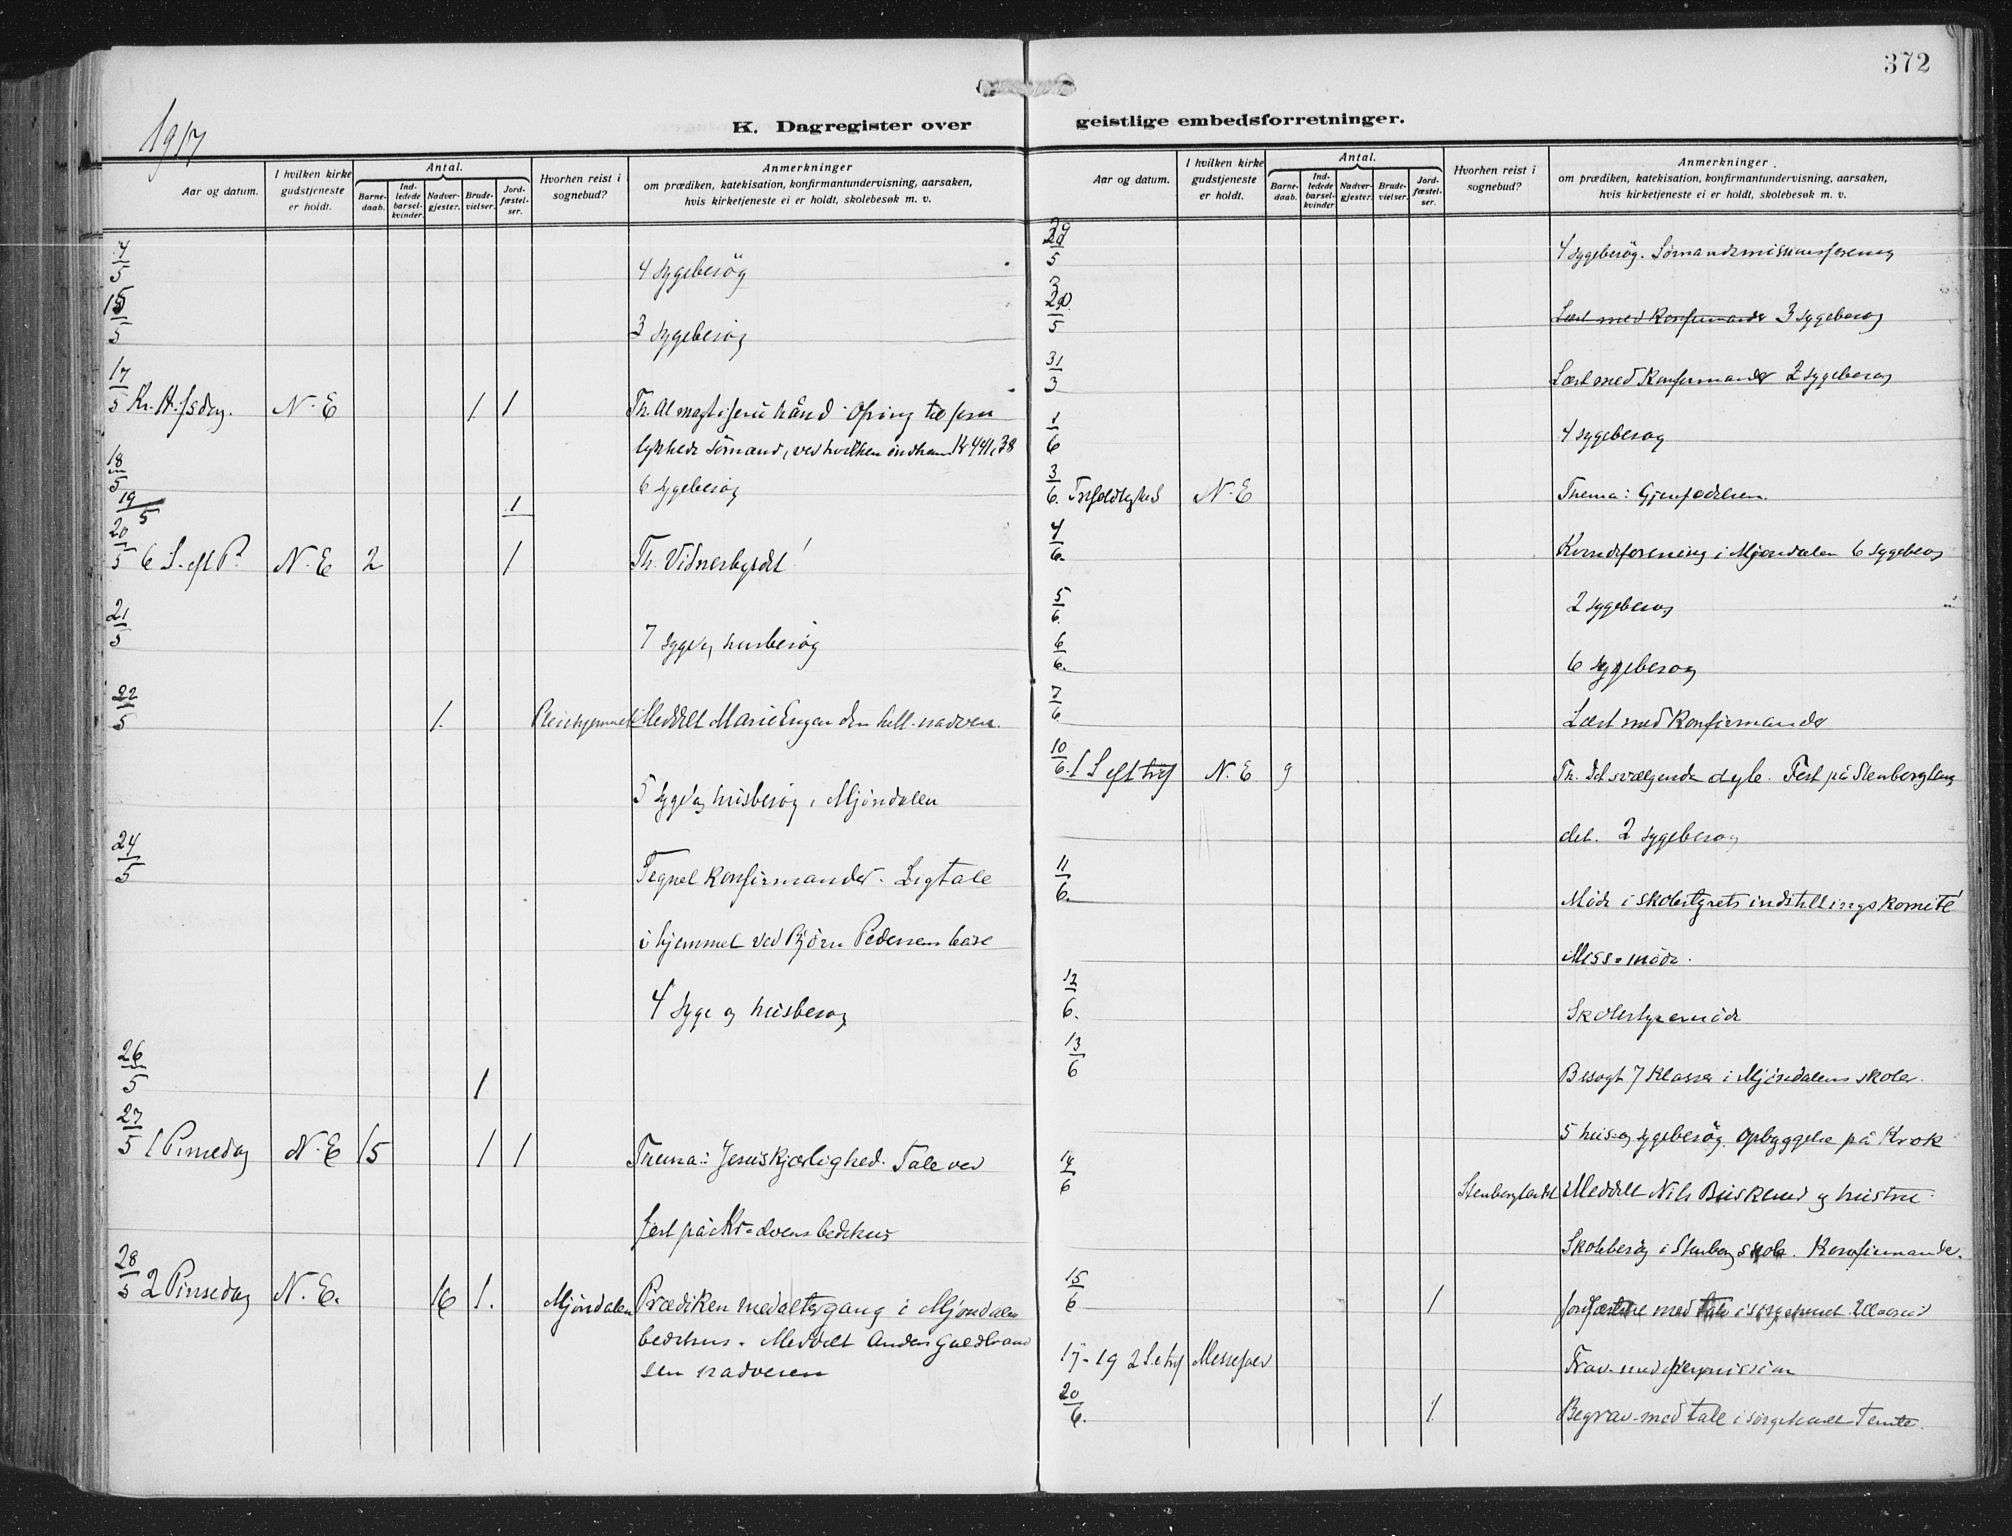 372
1917
K. Dagregister over
geistlige embedsforretninger.
Aar og datum.
I hvilken kirke gudstjeneste er holdt.
Antal.
Barnedaab.
Indledede barselkvinder
Nadvergjester.
Brudevielser.
Jordfæstelser.
Hvorhen reist i sognebud?
Anmerkninger
om prædiken, katekisation, konfirmantundervisning, aarsaken,
hvis kirketjeneste ei er holdt, skolebesøk m. v.
7/5 4 sygebesøg
15/5 3 sygebesøg
17/5 Kr. H. fsdag. N. E 1 1 Th. Al magt i Jesu hånd. Ofring til for
lykkede sømænd, ved hvilken indkom Kr 441,38
18/5 6 sygebesøg
19/5 1
20/5 6 S. eft P. N. E 2 1 Th. Vidnesbyrdet!
21/5 7 syge og husbesøg
22/5 1. Meddelt Marie Engan den hell. nadvere.
5 syge og husbesøg i Mjøndalen
24/5 Tegnet Konfirmander. Ligtale
i hjemmet ved Bjørn Pedersens båre
4 syge og husbesøg
26/5 1
27/5 1 Pinsedag N. E 15 1 1 Thema: Jesus kjærlighed. Tale ved
fest på Kr. bedehus
28/5 2 Pinsedag N. E. 16 1. Mjöndalen Prædiken med altergang i Mjöndalen
bedehus. Meddelt Anders Guldbrand
sen nadveren
Aar og datum.
I hvilken kirke gudstjeneste er holdt.
Antal.
Barnedaab.
Indledede barselkvinder
Nadvergjester.
Brudevielser.
Jordfæstelser.
Hvorhen reist i sognebud?
Anmerkninger
om prædiken, katekisation, konfirmantundervisning, aarsaken,
hvis kirketjeneste ei er holdt, skolebesøk m. v.
29/5 4 sygebesøg. Sømandsmissionsforening
30/5 Læst med Konfirmander 3 sygebesøg
31/5 Læst med Konfirmander 2 sygebesøg
1/6 4 sygebesøg
3/6. Trefoldighed N. E Thema: Gjenfødelsen.
4/6. Kvindeforening i Mjøndalen 6 sygebesøg
5/6. 2 sygebesøg
6/6. 6 sygebesøg
7/6 Læst med Konfirmander
10/6. 1 S eft tref N. E 9 Th. Det svælgende dyb. Fest på Stenberglan
det. 2 sygebesøg
11/6. Møde i skolestyrets indstillingskomité
Miss. møde.
12/6. Skolestyremøde
13/6 Besøgt 7 Klasser i Mjøndalens skole.
5 hus- og sygebesøg. Opbyggelse på Krok
14/6 Stenberglandet Meddelt Nils Buskerud og hustru
Skolebesøg i Stenberg skole. Konfirmander.
15/6 1 Jordfæstelse med tale i sørgehuset
17-19 2 S. e. tref Messefald Frav. med permission
20/6. 1 Begrav. med tale i sørgehuset Temte.